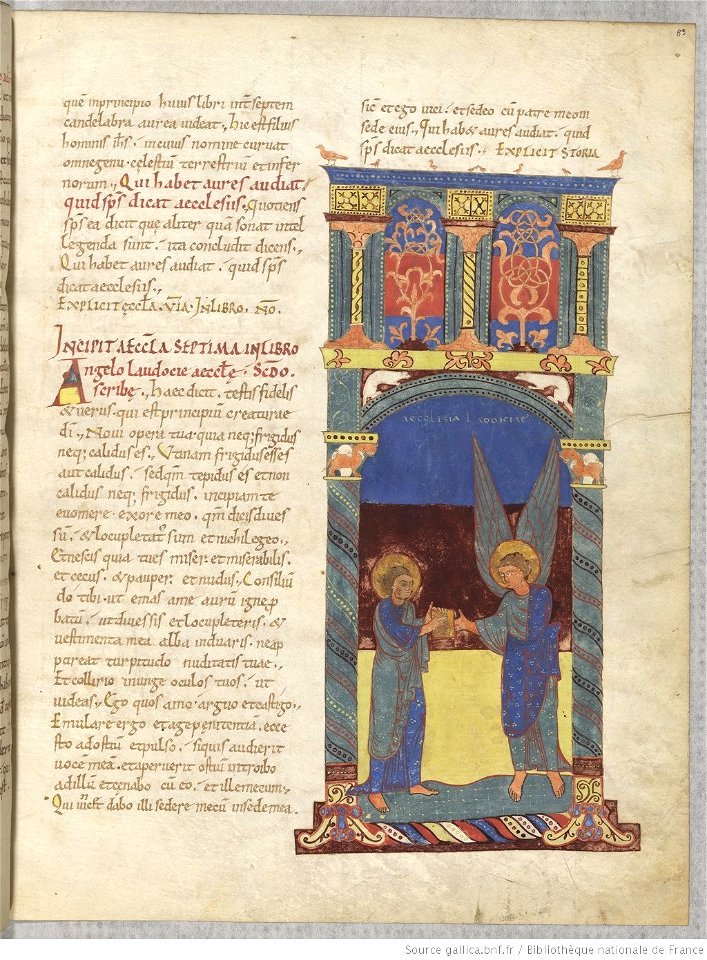 83
quē inprincipio huius libri int̄ septem
candelabra aurea videat,, hic est filius
hominis ih̄s. incuius nomine curvat
omnegenu. celestiū terrestriū et infer
norum,, Qui habet aures audiat.
quid sp̄s dicat aecclesiis. quotiens
sp̄s ea dicit que aliter quā sonat intel
legenda sunt. ita concludit dicens,,
Qui habet aures audiat. quid sp̄s
dicat aecclesiis,,
EXPLICIT ECCLA. VIA. INLIBRO. NO.
INCIPIT AECCLA SEPTIMA INLIBRO
Angelo Laudocie aeccl̄ę. SCDO.
scribe. haec dicit. testis fidelis
& verus. qui est principiū creaturae
dī,, Novi opera tua. quia neq; frigidus
neq; calidus es,, Utinam frigidus esses
aut calidus. sed qm̄ tepidus es et non
calidus neq; frigidus. incipiam te
evomere. ex ore meo. qm̄ dicis dives
sū. & locupletat' sum et nichil egeo,,
Et nescis quia tu es miser. et miserabilis.
et cecus. & pauper. et nudus,, Consiliū
do tibi. ut emas a me aurū ignep
batū,, ut divessis et locupleteris. &
vestimenta mea alba induaris. ne ap
pareat turpitudo nuditatis tuae,,
Et collirio inunge oculos tuos. ut
videas,, Ego quos amo. arguo et castigo,,
Emulare ergo et age penitentiā. ecce
sto ad ostiū et pulso. si quis audierit
voce meā. et aperuerit ostiū introibo
ad illū et cenabo cū eo. et ille mecum,,
Qui vicerit dabo illi sedere mecū in sede mea.
sic̄ et ego vici. et sedeo cū patre meo in
sede eius,, Qui hab& aures audiat. quid
sp̄s dicat aecclesiis,, EXPLICIT STORIA
aecclisia Lodiciae
Source gallica.bnf.fr / Bibliothèque nationale de France